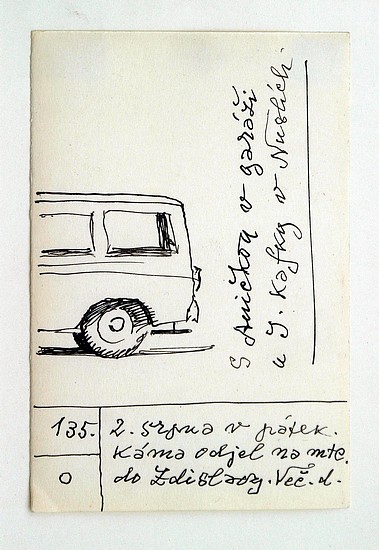 S Aničkou v garáži
u J. Kafky v Nuslích.
135.
0
2. srpna v pátek.
Káma odjel na mtc.
do Zdislavy. Več. d.